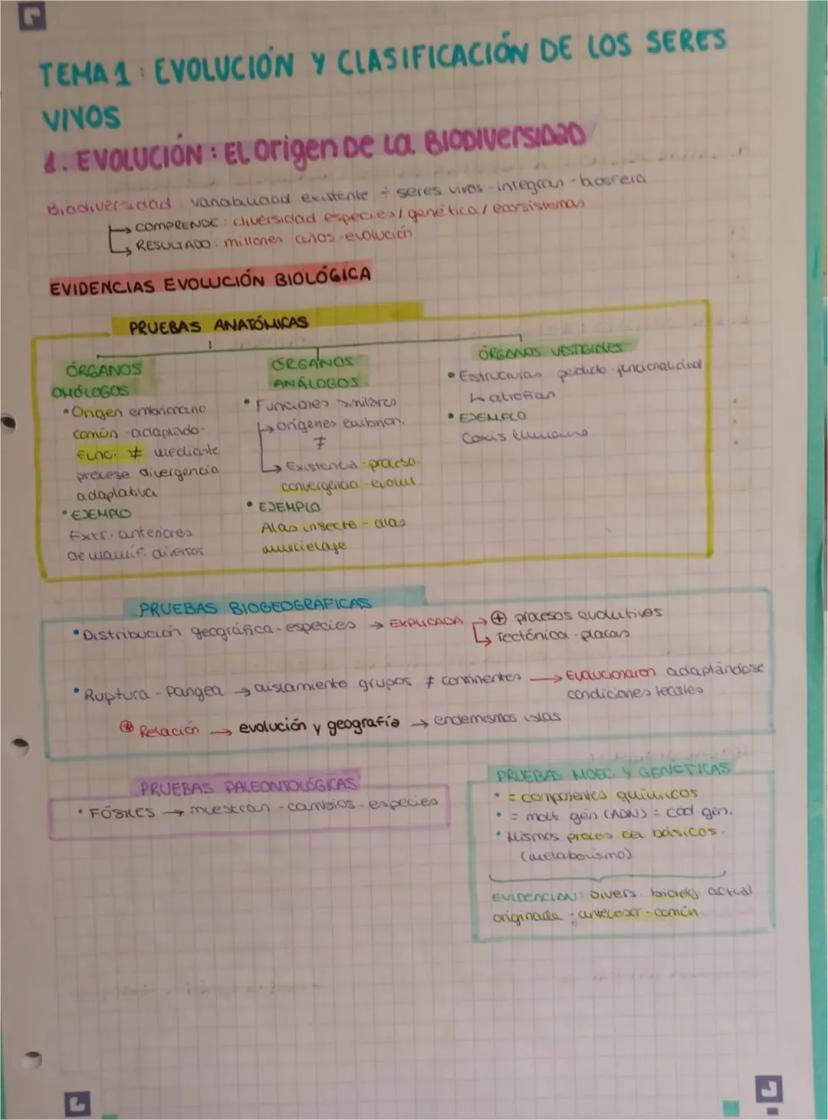 TEMA 1: EVOLUCIÓN Y CLASIFICACIÓN DE LOS SERES
VIVOS
1. EVOLUCIÓN: EL origen DE La BIODIVERSIDAD
Biodiversidad variabilidad existente ÷ seres vivos-integran-biosfera
→ COMPRENDE: diversidad especies/genética/ecosistemas
→ RESULTADO: millones años evolución
EVIDENCIAS EVOLUCIÓN BIOLÓGICA
PRUEBAS ANATÓMICAS
ÓRGANOS
OMÓLOGOS
• Origen embrionario
común-adaptado-
func. ≠ mediante
procese divergencia
adaptativa
• EJEMPLO
Extr. anteriores
de mamíf. diversos
ÓRGANOS
ANÁLOGOS
• Funciones similares
→ orígenes embrion.
≠
→ Existencia-proceso
convergencia-evolut
• EJEMPLO
Alas insecto-alas
murcielago
ÓRGANOS VESTIGIALES
• Estructuras perdido funcionalidad
↳ atrofian
• EJEMPLO
Coxis humano
PRUEBAS BIOGEOGRÁFICAS
• Distribución geográfica-especies → EXPLICADA → ⊕ procesos evolutivos
↳ Tectónica-placas
• Ruptura-Pangea → aislamiento grupos ≠ continentes → Evolucionaron adaptándose
condiciones locales
⊕ Relación → evolución y geografía → endemismos islas
PRUEBAS PALEONTOLÓGICAS
• FÓSILES → muestran-cambios-especies
PRUEBAS MOEC. Y GENÉTICAS
• = componentes químicos
• = moléc gen (ADN) = cod gen.
• Mismos proces cel básicos.
(metabolismo)
EVIDENCIAN: Divers. biológ actual
originada ÷ antecesor-común